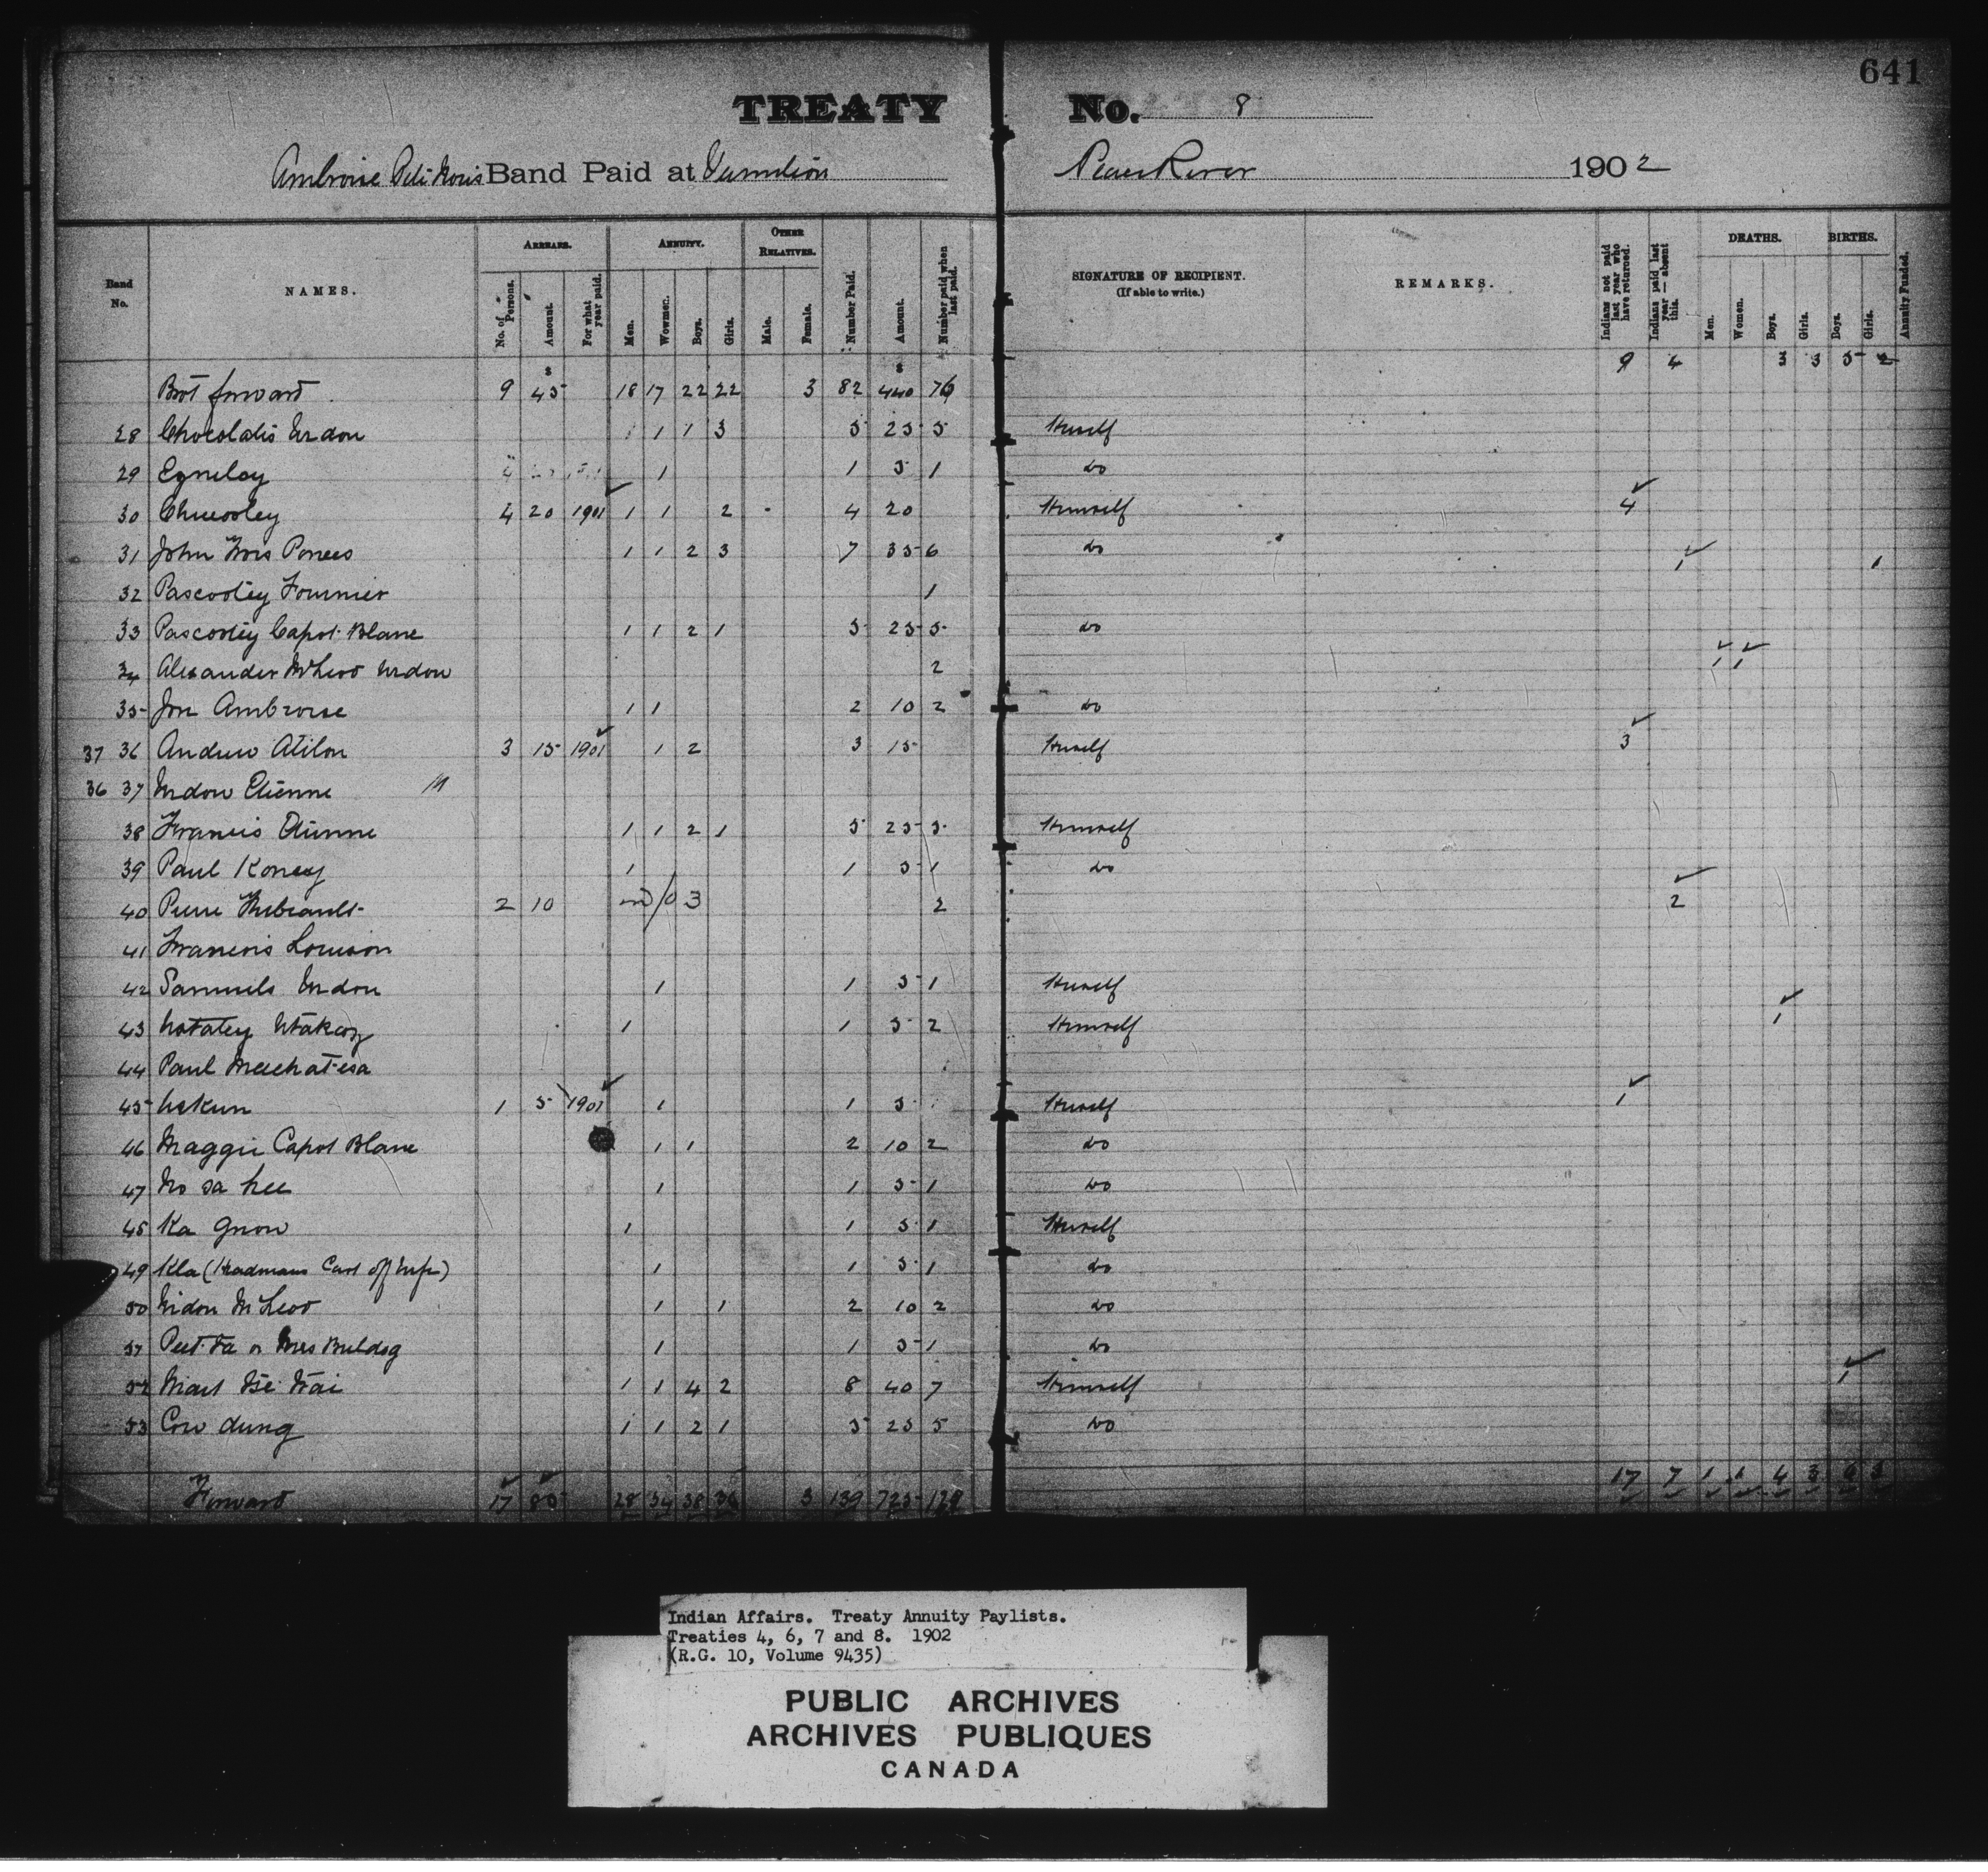 641
TREATY No. 8
Ambroise Band Paid at Vermilion Peace River 1902
Band No. NAMES. ARREARS. No. of Persons. Amount. For what year paid. ANNUITY. Men. Wowmen. Boys. Girls. OTHER RELATIVES. Male. Female. Number Paid. Amount. Number paid when last paid. SIGNATURE OF RECIPIENT. (If able to write.) REMARKS. Indians not paid last year who have returned. Indians paid last year — absent this. DEATHS. Men. Women. Boys. Girls. BIRTHS. Boys. Girls. Annuity Funded.
Brot forward 9 45 18 17 22 22 3 82 440 76 9 4 3 3 5 2
28 Chocolatis Widow 1 1 3 5 25 5 Herself
29 1 1 5 1 do
30 Chueooley 4 20 1901 1 1 2 4 20 Himself 4
31 John 1 1 2 3 7 35 6 do 1 1
32 Pascooley Fournier 1
33 Pascooley Capot Blanc 1 1 2 1 5 25 5 do
34 Alexander McLeod Widow 2 1 1
35 Jon Ambroise 1 1 2 10 2 do
37 36 Andrew Atilon 3 15 1901 1 2 3 15 Herself 3
36 37 Widow Etienne
38 Francis Etienne 1 1 2 1 5 25 5 Himself
39 Paul Koney 1 1 5 1 do
40 Pierre 2 10 2 2
41 Francois Louison
42 Samuels Widow 1 1 5 1 Herself
43 1 1 5 2 Himself 1
44 Paul
45 1 5 1901 1 1 5 Herself 1
46 Maggie Capot Blanc 1 1 2 10 2 do
47 1 1 5 1 do
48 Ka Gnon 1 1 5 1 Herself
49 Kla (Headmans Cast off Wife) 1 1 5 1 do
50 Widow McLeod 1 1 2 10 2 do
51 or Mrs Buldog 1 1 5 1 do
52 1 1 4 2 8 40 7 Himself 1
53 Cow dung 1 1 2 1 5 25 5 do
Forward 17 85 28 34 38 36 3 139 725 129 17 7 1 1 4 3 6 3
Indian Affairs. Treaty Annuity Paylists.
Treaties 4, 6, 7 and 8. 1902
(R.G. 10, Volume 9435)
PUBLIC ARCHIVES
ARCHIVES PUBLIQUES
CANADA